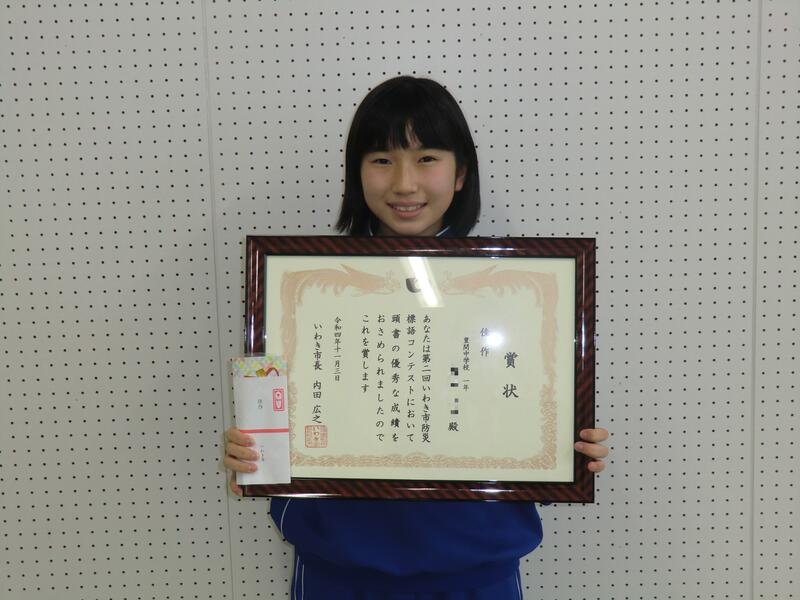 賞状
佳作
豊間中学校 一年
殿
あなたは第二回いわき市防災
標語コンテストにおいて
頭書の優秀な成績を
おさめられましたので
これを賞します
令和四年十一月三日
いわき市長 内田 広之
佳作
いわき市